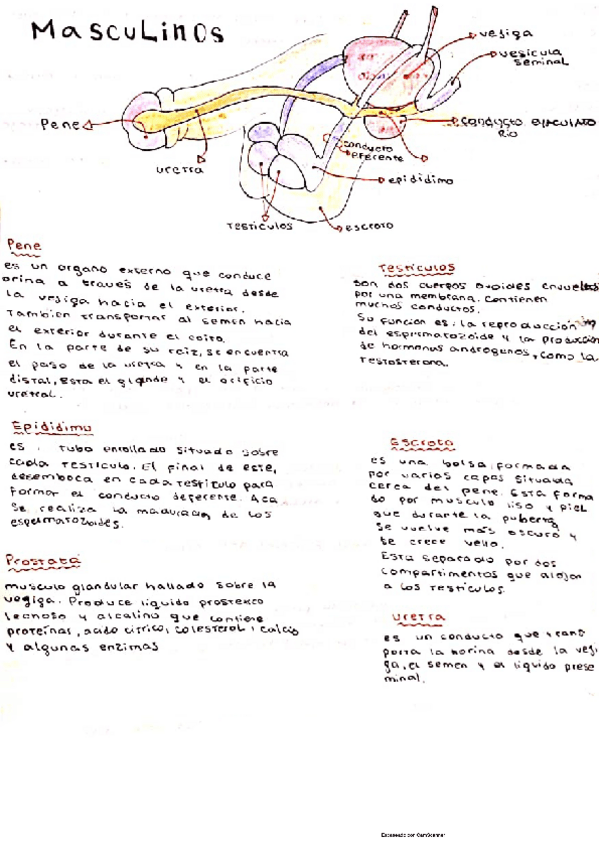 Masculinos
vejiga
vesicula
seminal
Pene
conducto eyaculato
rio
uretra
conducto
eferente
epidídimo
testículos
escroto
Pene
es un organo externo que conduce
orina a través de la uretra desde
la vejiga hacia el exterior.
También transportar al semen hacia
el exterior durante el coito.
En la parte de su raíz, se encuentra
el paso de la uretra y en la parte
distal, esta el glande y el orificio
uretral.
Testículos
son dos cuerpos ovoides envueltos
por una membrana. Contienen
muchos conductos.
Su función es: la reproducción
del espermatozoide y la producción
de hormonas androgenos, como la
testosterona.
Epidídimo
es tubo enrollado situado sobre
cada testículo. El final de este,
desemboca en cada testículo para
formar el conducto deferente. Aca
se realiza la maduración de los
espermatozoides.
Escroto
es una bolsa formada
por varias capas situada
cerca del pene. Esta forma
do por musculo liso y piel
que durante la puberta
se vuelve más oscuro y
se crece vello.
Esta separado por dos
compartimentos que alojan
a los testículos.
Prostata
musculo glandular hallado sobre la
vegiga. Produce liquido
lechoso y alcalino que contiene
proteínas, acido cítrico, colesterol, calcio
y algunas enzimas
Uretra
es un conducto que trans
porta la horina desde la veji
ga, el semen y el líquido prese
minal.
Escaneado por CamScanner